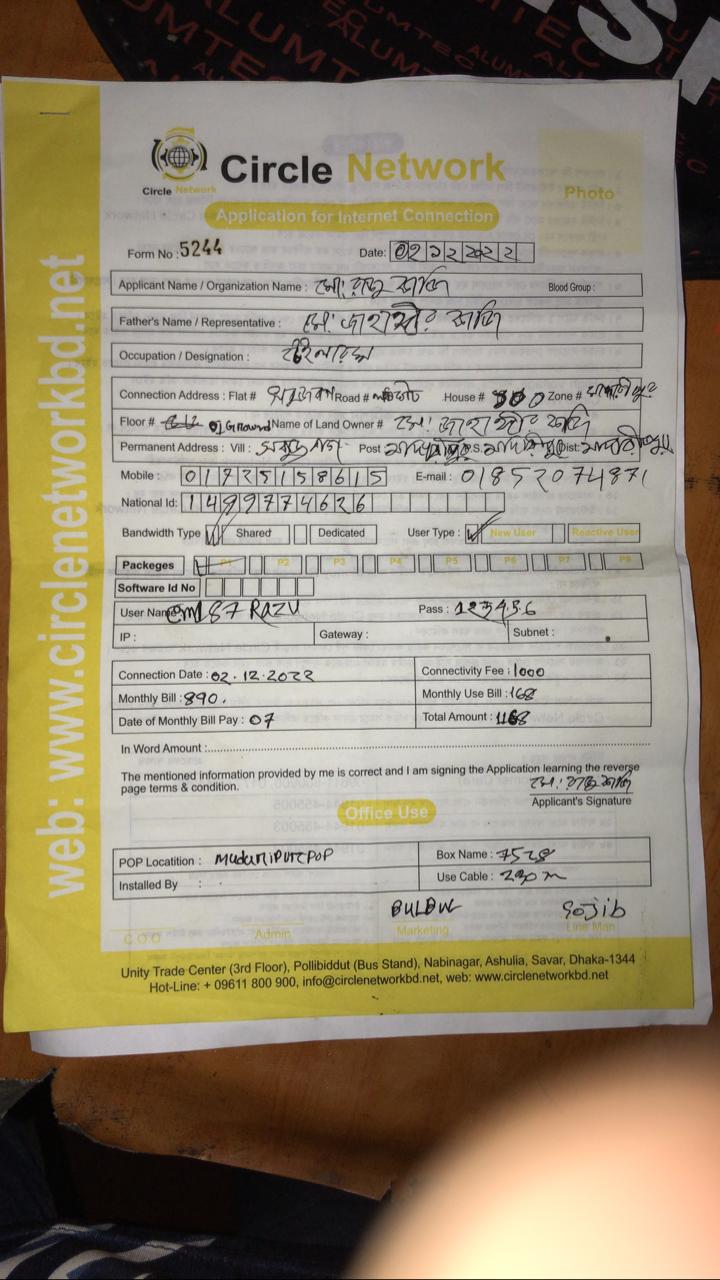 ALUMTEC
Circle Network
Circle Network
Photo
Application for Internet Connection
Form No : 5244
Date: 02122022
Applicant Name / Organization Name : মো: রাজু কাজি Blood Group :
Father's Name / Representative : মো: জাহাঙ্গীর কাজি
Occupation / Designation :
Connection Address : Flat # Road # House # Zone #
Floor # 01 Ground Name of Land Owner # মো: জাহাঙ্গীর কাজি
Permanent Address : Vill : Post মাদারীপুর P.S. মাদারীপুর Dist: মাদারীপুর
Mobile : 01725158615 E-mail : 01852074871
National Id: 1499774626
Bandwidth Type Shared Dedicated User Type : New User Reactive User
Packeges P1 P2 P3 P4 P5 P6 P7 P8
Software Id No
User Name: cm187 RAZU Pass : 123456
IP : Gateway : Subnet :
Connection Date : 02.12.2022 Connectivity Fee : 1000
Monthly Bill : 890. Monthly Use Bill : 168
Date of Monthly Bill Pay : 07 Total Amount : 1168
In Word Amount :
The mentioned information provided by me is correct and I am signing the Application learning the reverse
page terms & condition.
মো: রাজু কাজি
Applicant's Signature
Office Use
POP Locatition : MudariPUrPOP Box Name : 7528
Installed By : Use Cable : 230 m
BULBUL Sojib
C.O.O Admin Marketing Line Man
Unity Trade Center (3rd Floor), Pollibiddut (Bus Stand), Nabinagar, Ashulia, Savar, Dhaka-1344
Hot-Line: + 09611 800 900, info@circlenetworkbd.net, web: www.circlenetworkbd.net
web: www.circlenetworkbd.net